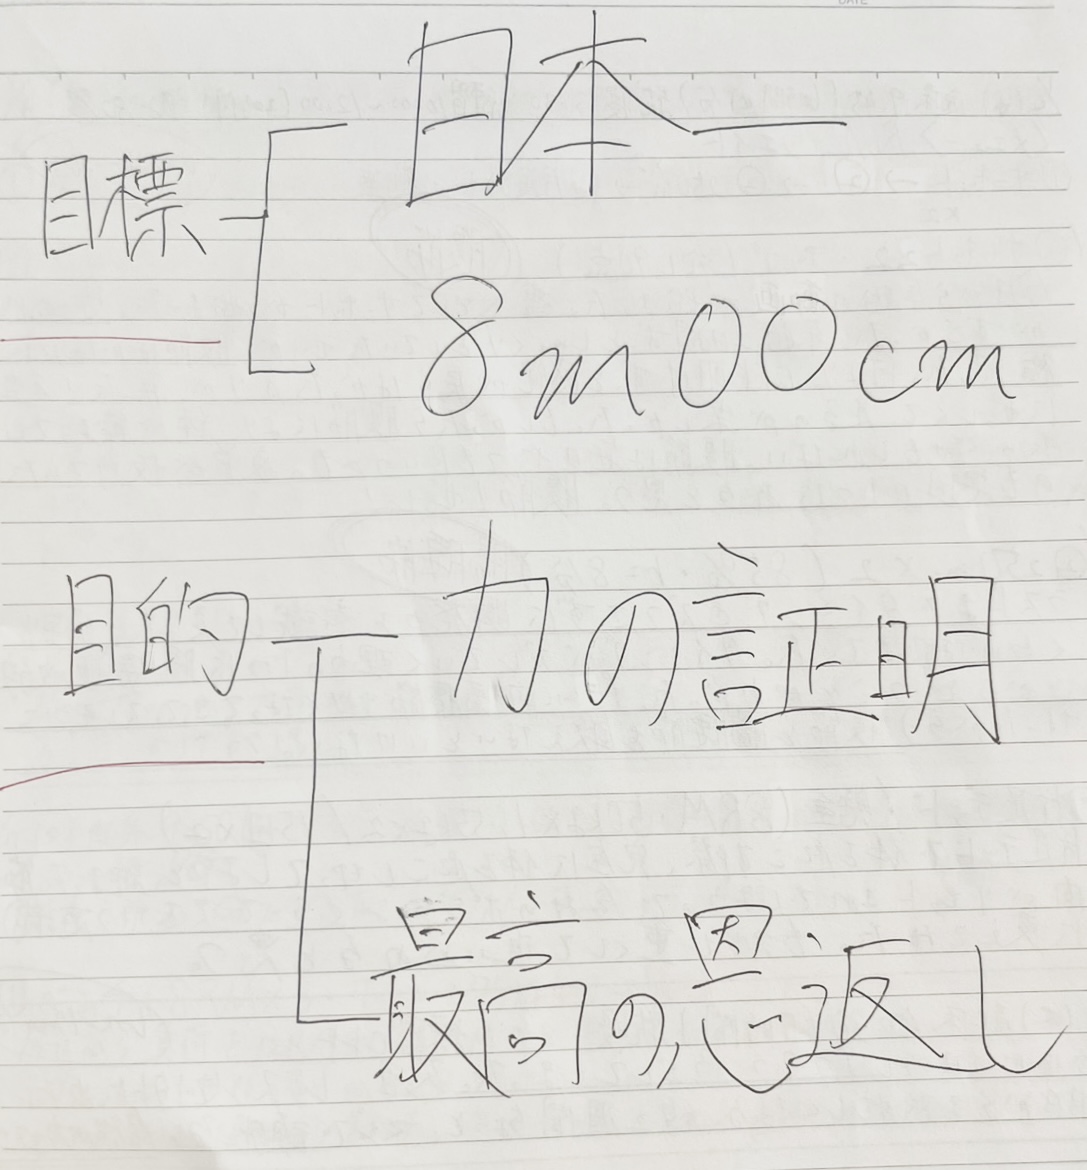 目標
日本一
8m00cm
目的
力の証明
最高の恩返し